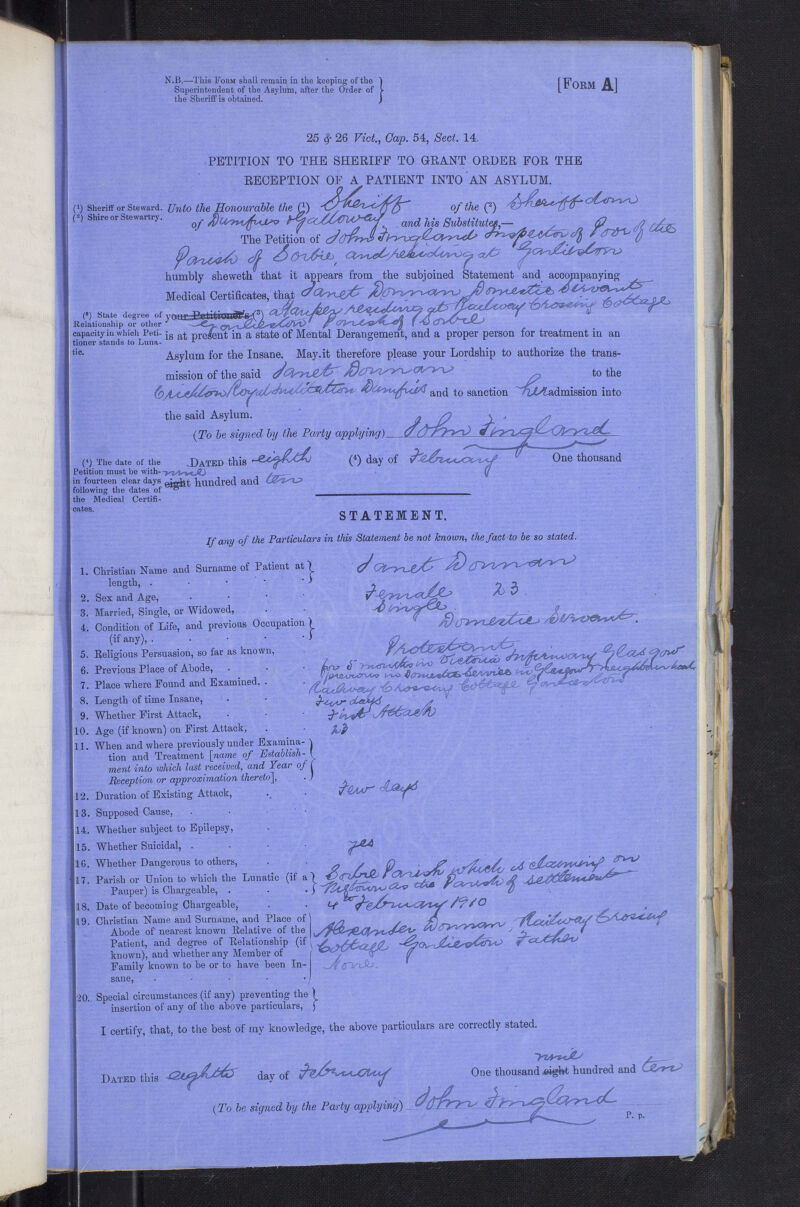 N.B.—This Form shall remain in the keeping of the
Superintendent of the Asylum, after the Order of
the Sheriff is obtained.
[Form A]
25 & 26 Vict., Cap. 54, Sect. 14.
PETITION TO THE SHERIFF TO GRANT ORDER FOR THE
RECEPTION OF A PATIENT INTO AN ASYLUM.
(¹) Sheriff or Steward.
(²) Shire or Stewartry.
Unto the Honourable the (¹) Sheriff of the (²) Sheriffdom
of Dumfries & Galloway and his Substitutes,—
The Petition of John Fingland Inspector of Poor of the
Parish of Sorbie, and residing at Garlieston
humbly sheweth that it appears from the subjoined Statement and accompanying
Medical Certificates, that Janet Donnan Domestic Servant
(³) State degree of
Relationship or other
capacity in which Peti-
tioner stands to Luna-
tic.
your Petitioner's (³) a Pauper residing at Railway Crossing Cottage
Garlieston Parish of Sorbie
is at present in a state of Mental Derangement, and a proper person for treatment in an
Asylum for the Insane. May it therefore please your Lordship to authorize the trans-
mission of the said Janet Donnan to the
Crichton Royal Institution Dumfries and to sanction her admission into
the said Asylum.
(To be signed by the Party applying) John Fingland
(⁴) The date of the
Petition must be with-
in fourteen clear days
following the dates of
the Medical Certifi-
cates.
Dated this eighth (⁴) day of February One thousand
nine
eight hundred and ten
STATEMENT.
If any of the Particulars in this Statement be not known, the fact to be so stated.
1. Christian Name and Surname of Patient at
length, . Janet Donnan
2. Sex and Age, Female 23
3. Married, Single, or Widowed, Single
4. Condition of Life, and previous Occupation
(if any), . Domestic Servant.
5. Religious Persuasion, so far as known, Protestant
6. Previous Place of Abode, for 5 months in Victoria Infirmary Glasgow
previous in Domestic Service in Glasgow & neighbourhood
7. Place where Found and Examined. Railway Crossing Cottage Garlieston
8. Length of time Insane, Few days
9. Whether First Attack, First Attack
10. Age (if known) on First Attack, 23
11. When and where previously under Examina-
tion and Treatment [name of Establish-
ment into which last received, and Year of
Reception or approximation thereto],
12. Duration of Existing Attack, Few days
13. Supposed Cause,
14. Whether subject to Epilepsy,
15. Whether Suicidal, yes
16. Whether Dangerous to others,
17. Parish or Union to which the Lunatic (if a
Pauper) is Chargeable, Sorbie Parish which is claiming on
Wigtown as the Parish of settlement
18. Date of becoming Chargeable, 4th February 1910
19. Christian Name and Surname, and Place of
Abode of nearest known Relative of the
Patient, and degree of Relationship (if
known), and whether any Member of
Family known to be or to have been In-
sane, Alexander Donnan, Railway Crossing
Cottage Garlieston Father
None
20. Special circumstances (if any) preventing the
insertion of any of the above particulars,
I certify, that, to the best of my knowledge, the above particulars are correctly stated.
nine
Dated this eighth day of February One thousand eight hundred and ten
(To be signed by the Party applying) John Fingland
P. p.